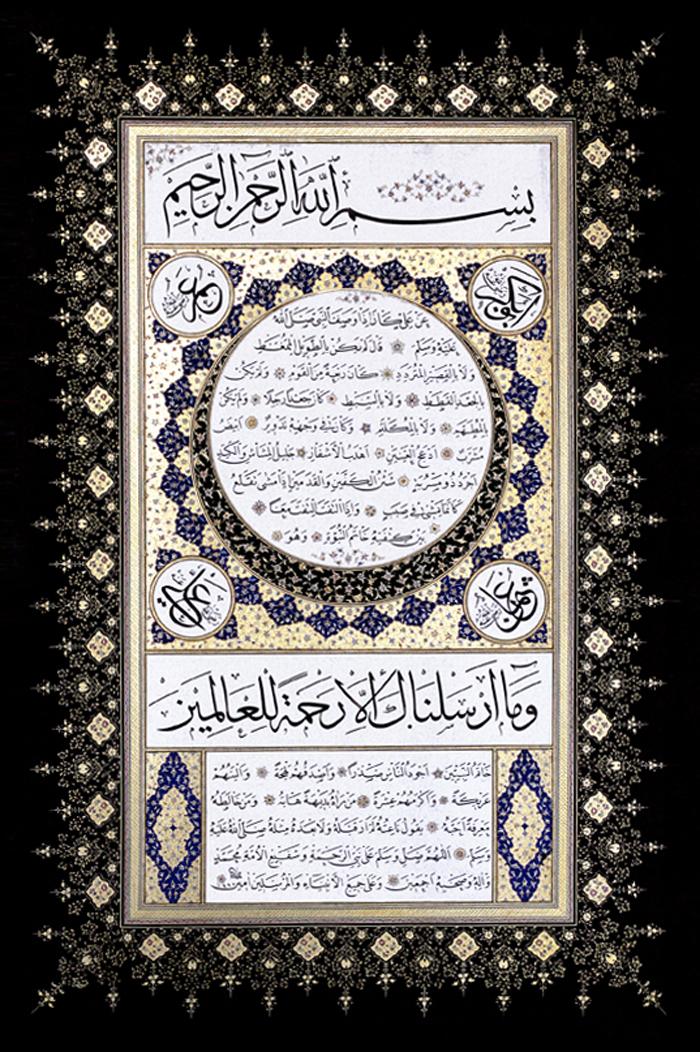 بسم الله الرحمن الرحيم
ابوبكر
عمر
عن علي كان اذا وصف النبي صلى الله
عليه وسلم قال لم يكن بالطويل الممغط
ولا بالقصير المتردد كان ربعة من القوم ولم يكن
بالجعد القطط ولا بالسبط كان جعدا رجلا ولم يكن
بالمطهم ولا بالمكلثم وكان في وجهه تدوير ابيض
مشرب ادعج العينين اهدب الاشفار جليل المشاش والكتد
اجرد ذو مسربة شثن الكفين والقدمين اذا مشى تقلع
كانما يمشي في صبب واذا التفت التفت معا
بين كتفيه خاتم النبوة وهو
عثمان
علي
وما ارسلناك الا رحمة للعالمين
خاتم النبيين اجود الناس صدرا واصدقهم لهجة والينهم
عريكة واكرمهم عشرة من راه بديهة هابه ومن خالطه
معرفة احبه يقول ناعته لم ار قبله ولا بعده مثله صلى الله عليه
وسلم اللهم صل وسلم على نبي الرحمة وشفيع الامة محمد
واله وصحبه اجمعين وعلى جميع الانبياء والمرسلين امين